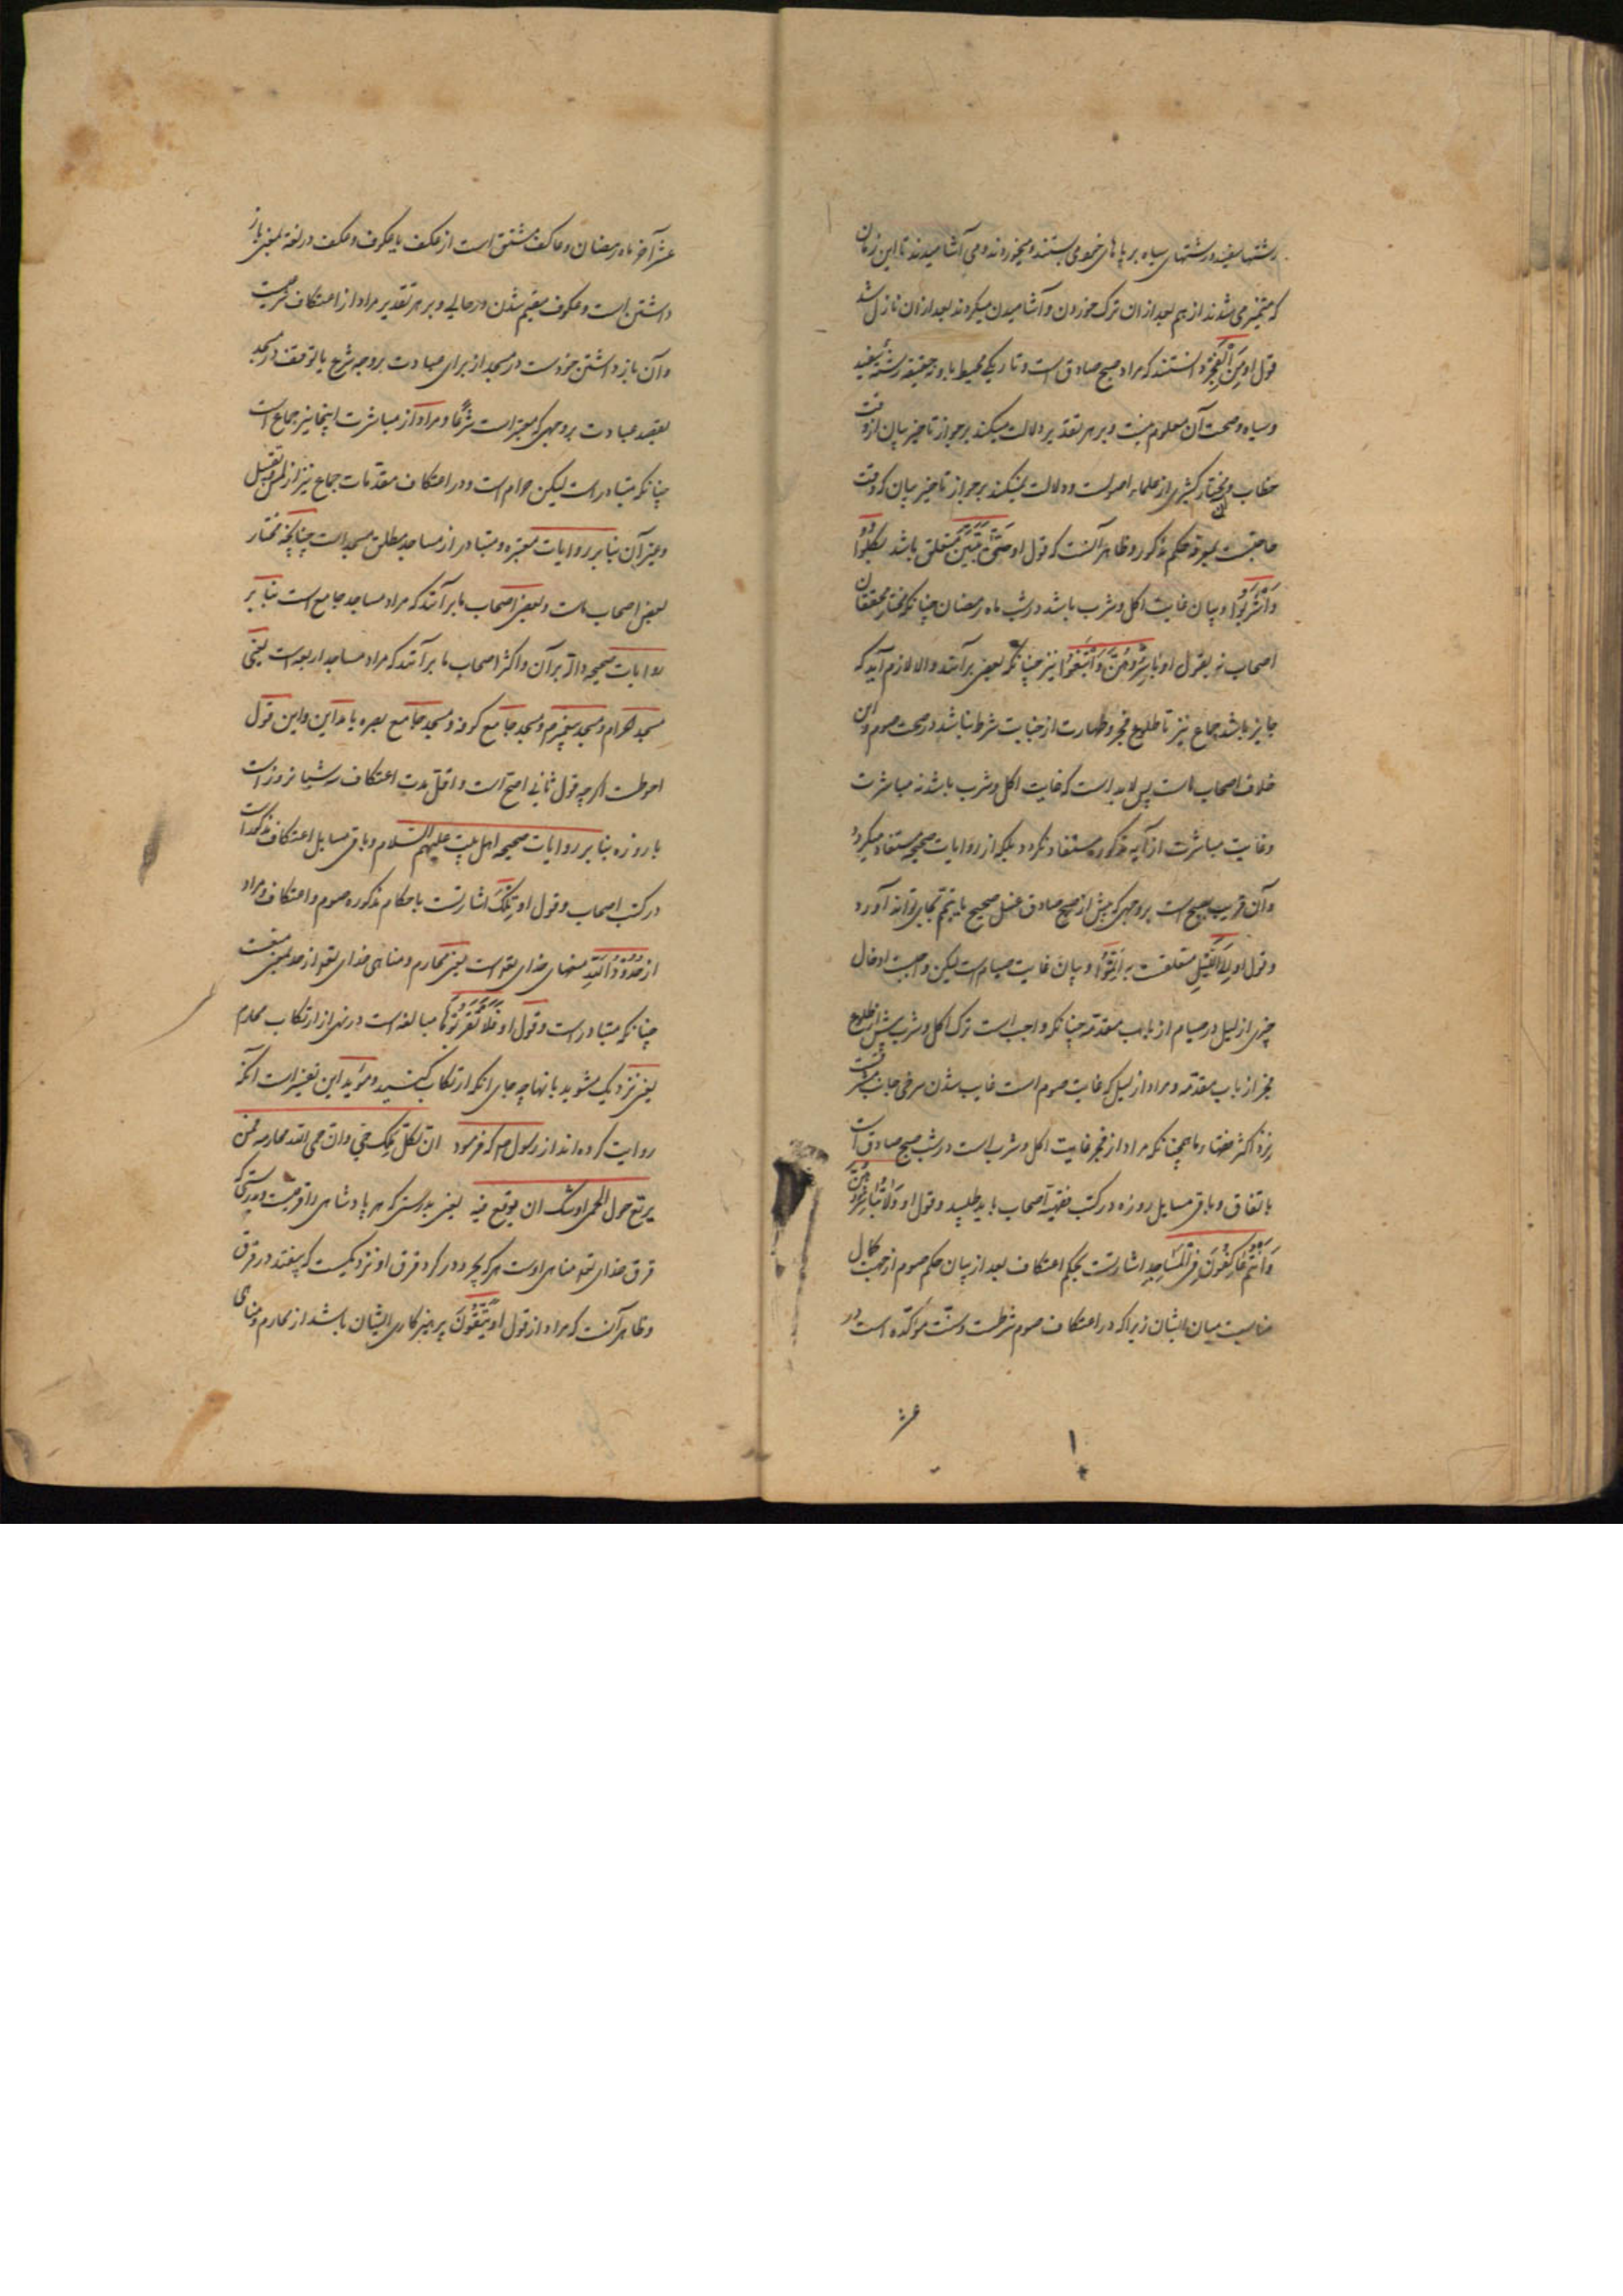 رشتها سفید و رشتهای سیاه بر پاهای خود می بستند و میخوردند و می آشامیدند تا این زمان
که متمیز می شدند از هم بعد از ان ترک خوردن و آشامیدن میکردند بعد از ان نازل شد
قول او مِنَ الْفَجْرِ دانستند که مراد صبح صادق است و تاریکی محیط باو نه حقیقة رشته سفید
و سیاه و صحت آن معلوم نیست و بر هر تقدیر دلالت میکند بر جواز تاخیر بیان از وقت
خطاب و مختار کثیری از علماء اصولست و دلالت نمیکند بر جواز تاخیر بیان که وقت
حاجتست حکم مذکور و ظاهر آنست که قول او حَتّی یَتَبَیَّنَ متعلق باشد بکُلُوا
وَاشْرَبُوا و بیان غایت اکل و شرب باشد در شب ماه رمضان چنانکه مختار محققان
اصحاب نه بقول او بَاشِرُوهُنَّ وَابْتَغُوا نیز چنانکه بعضی برآنند والا لازم آید که
جایز باشد جماع نیز تا طلوع فجر و طهارت از جنابت شرط نباشد در صحت صوم و این
خلاف اصحاب ماست پس لابد است که غایت اکل و شرب باشد نه مباشرت
و غایت مباشرت از آیه مذکوره مستفاد نگردد بلکه از روایات صحیحه مستفاد میگردد
و آن قریب صبح است بر وجهی که پیش از صبح صادق غسل صحیح یا تیمم بجای تواند آورد
و قول او اِلَی الَّیْلِ متعلقست به اَتِمُّوا و بیان غایت صیام است لیکن واجبست ادخال
چیزی از لیل در صیام از باب مقدمه چنانکه واجب است ترک اکل و شرب پیش از طلوع
فجر از باب مقدمه و مراد از لیل که غایت صوم است غایب شدن سرخی جانب مشرقست
نزد اکثر فقهاء ما همچنانکه مراد از فجر غایت اکل و شرب است در شب صبح صادق است
باتفاق و باقی مسایل روزه در کتب فقهیه اصحاب باید طلبید و قول او وَلَا تُبَاشِرُوهُنَّ
وَاَنْتُمْ عَاکِفُونَ فِی الْمَسَاجِدِ اشارتست بحکم اعتکاف بعد از بیان حکم صوم از جهت کمال
مناسبت میان ایشان زیرا که در اعتکاف صوم شرطست و سنت موکده است در
عشر
عشر آخر ماه رمضان و عاکف مشتق است از عکف یا عکوف و عکف در لغة بمعنی باز
داشتن است و عکوف مقیم شدن در جایی و بر هر تقدیر مراد از اعتکاف شرعیست
و آن باز داشتن خودست در مسجد از برای عبادت بر وجه شرع یا توقف در مسجد
بقصد عبادت بر وجهی که معتبر است شرعًا و مراد از مباشرت اینجا نیز جماع است
چنانکه متبادر است لیکن حرام است در اعتکاف مقدمات جماع نیز از لمس و تقبیل
و غیر آن بنا بر روایات معتبره و متبادر از مساجد مطلق مسجد است چنانچه مختار
بعض اصحاب ماست و بعضی اصحاب ما برآنند که مراد مساجد جامع است بنا بر
روایات صحیحه داله بر آن و اکثر اصحاب ما برآنند که مراد مساجد اربعه است یعنی
مسجد حرام و مسجد پیغمبر صم و مسجد جامع کوفه و مسجد جامع بصره یا مداین و این قول
احوطست اگر چه قول ثانی اصح است و اقل مدت اعتکاف سه شبانروز است
با روزه بنا بر روایات صحیحه اهل بیت علیهم السلام و باقی مسایل اعتکاف مذکور است
در کتب اصحاب و قول او تِلْکَ اشارتست باحکام مذکوره صوم و اعتکاف و مراد
از حُدُودُ اللّهِ منتهای خدای تعو است یعنی محارم و مناهی خدای تعو از حد بمعنی منعست
چنانکه متبادر است و قول او فَلَا تَقْرَبُوهَا مبالغه است در نهی از ارتکاب محارم
یعنی نزدیک مشوید بانها چه جای انکه ارتکاب کنید و موید این تفسیر است آنکه
روایت کرده اند از رسول صم که فرمود ان لکل ملک حمی وان حمی الله محارمه فمن
یرتع حول الحمی اوشک ان یوقع فیه یعنی بدرستی که هر پادشاهی را قرقیست و بدرستی که
قرق خدای تعو مناهی اوست هر که بچرد در گرد قرق او نزدیکست که بیفتد در قرق
و ظاهر آنست که مراد از قول او یَتَّقُونَ پرهیزکاری ایشان باشد از محارم و مناهی